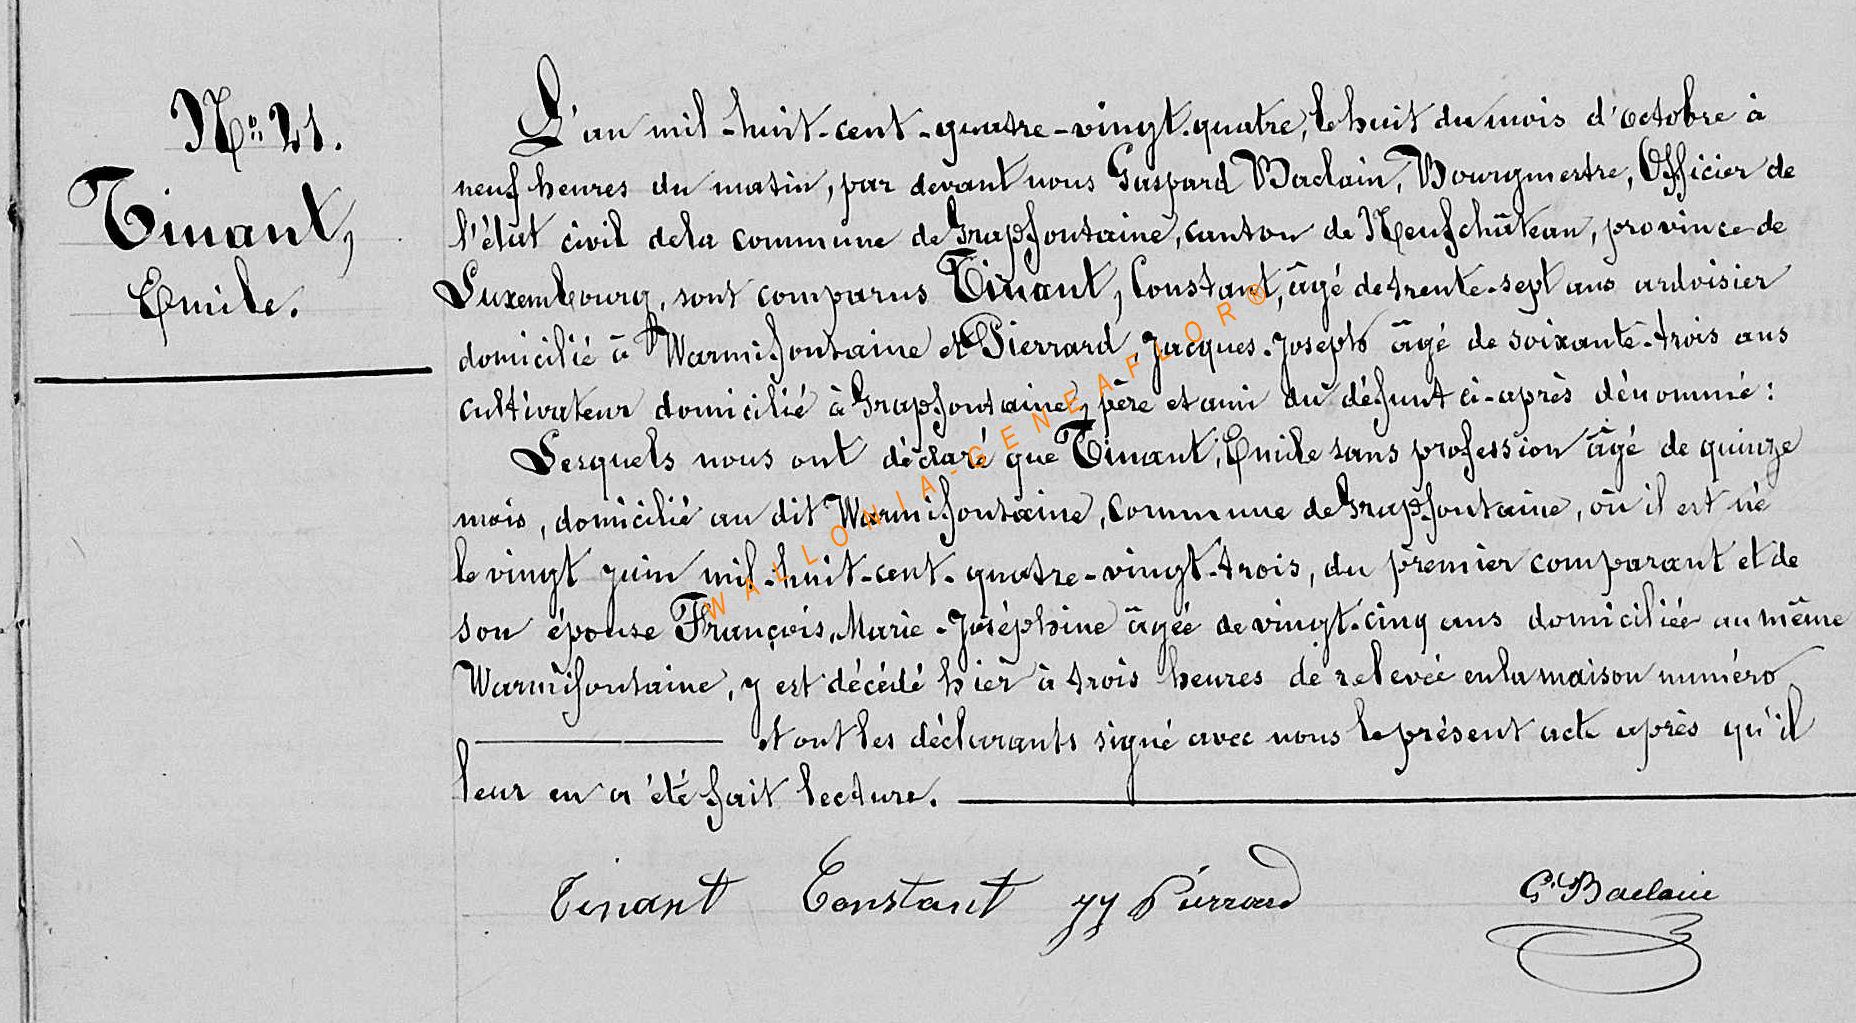 No 21.
Tinant,
Emile.
L'an mil-huit-cent-quatre-vingt-quatre, le huit du mois d'octobre à
neuf heures du matin, par devant nous Gaspard Baclain, Bourgmestre, Officier de
l'état civil de la commune de Grapfontaine, canton de Neufchâteau, province de
Luxembourg, sont comparus Tinant, Constant, âgé de trente-sept ans ardoisier
domicilié à Warmifontaine et Pierrard, Jacques-Joseph âgé de soixante-trois ans
cultivateur domicilié à Grapfontaine, père et ami du défunt ci-après dénommé:
Lesquels nous ont déclaré que Tinant, Emile sans profession âgé de quinze
mois, domicilié au dit Warmifontaine, commune de Grapfontaine, où il est né
le vingt juin mil-huit-cent-quatre-vingt-trois, du premier comparant et de
son épouse François, Marie-Joséphine âgée de vingt-cinq ans domiciliée au même
Warmifontaine, y est décédé hier à trois heures de relevée en la maison numéro
et ont les déclarants signé avec nous le présent acte après qu'il
leur en a été fait lecture.
Tinant Constant JJ Pierrard G Baclain
WALLONIA-GENEAFLOR®